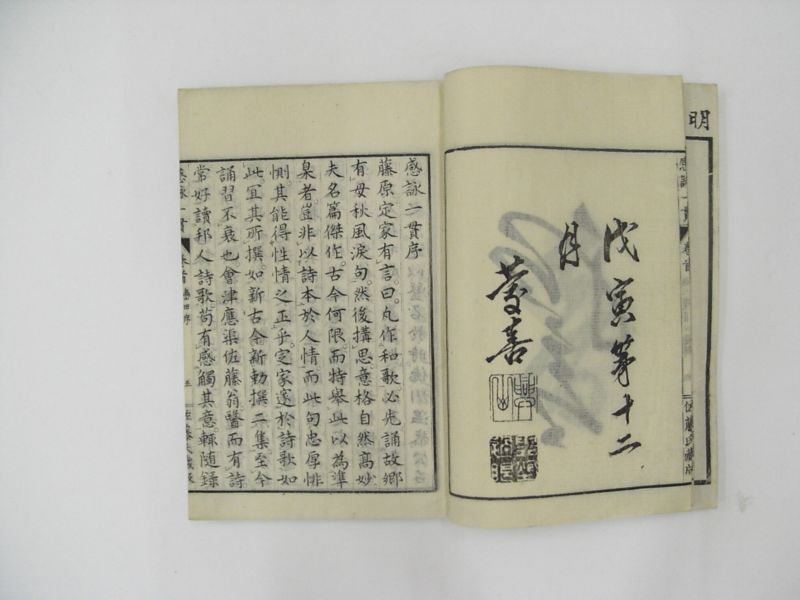 明
感詠一貫 卷首
戊寅第十二
月
感詠一貫序
藤原定家有言曰凡作和歌必先誦故鄉
有母秋風淚句然後搆思意格自然高妙
夫名篇傑作古今何限而特舉此以為準
臬者豈非以詩本於人情而此句忠厚悱
惻其能得性情之正乎定家邃於詩歌如
此宜其所撰如新古今新勅撰二集至今
誦習不衰也會津應渠佐藤翁醫而有詩
常好讀邦人詩歌苟有感觸其意輙隨錄
感詠一貫 卷首